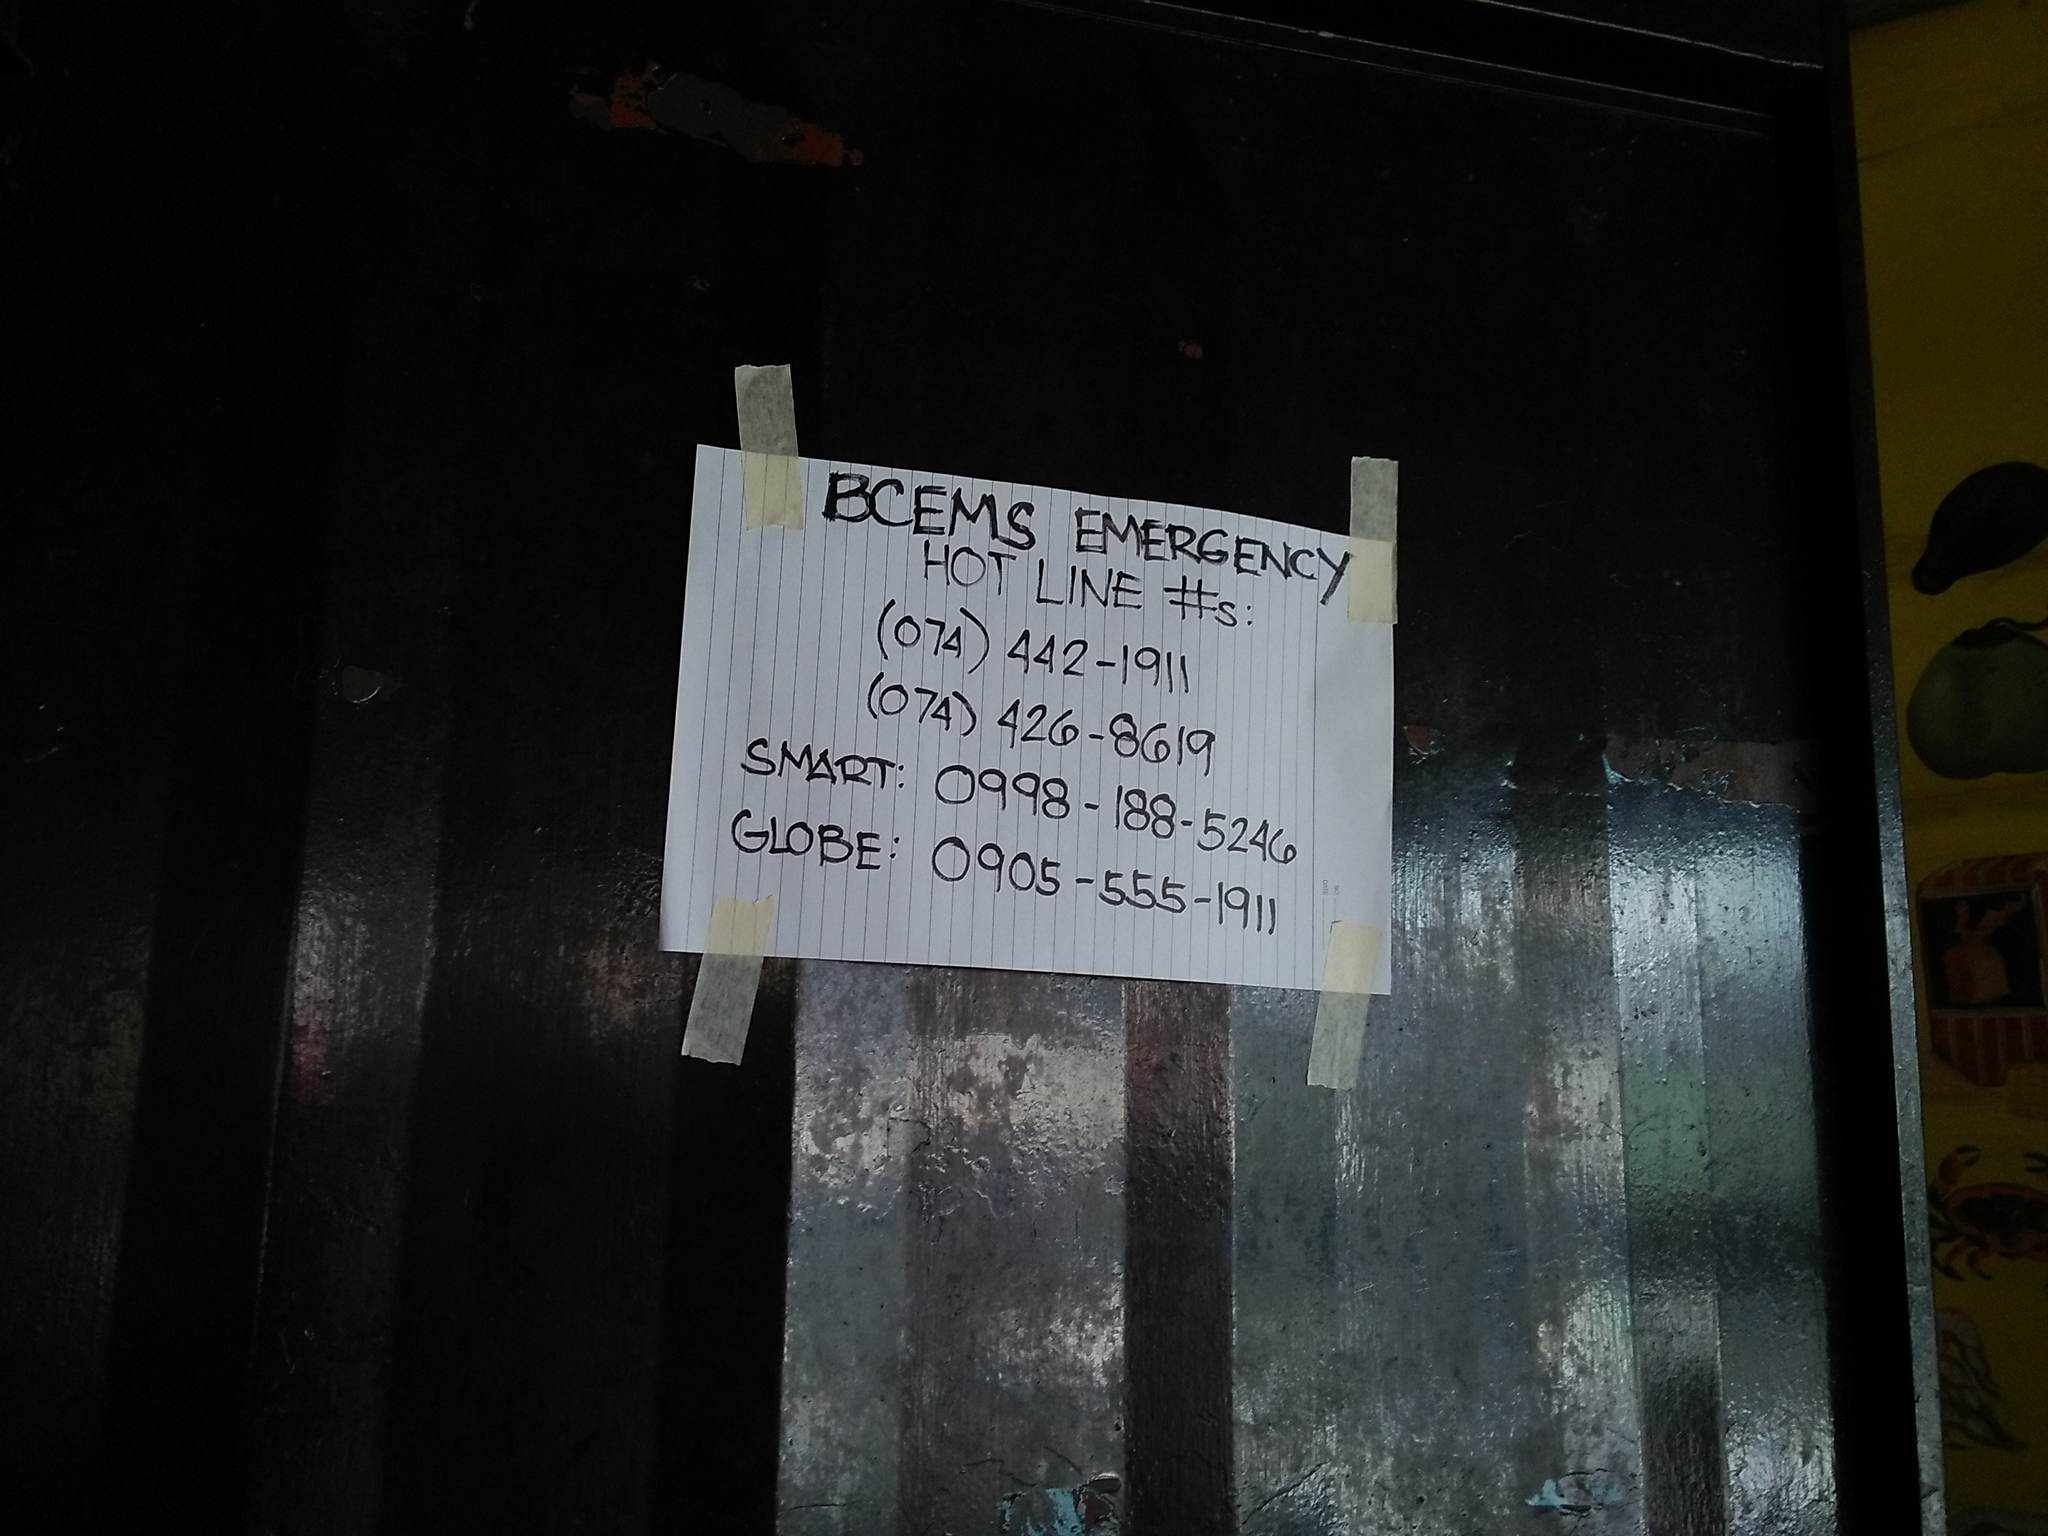 BCEMS EMERGENCY
HOT LINE #s:
(074) 442-1911
(074) 426-8619
SMART: 0998-188-5246
GLOBE: 0905-555-1911